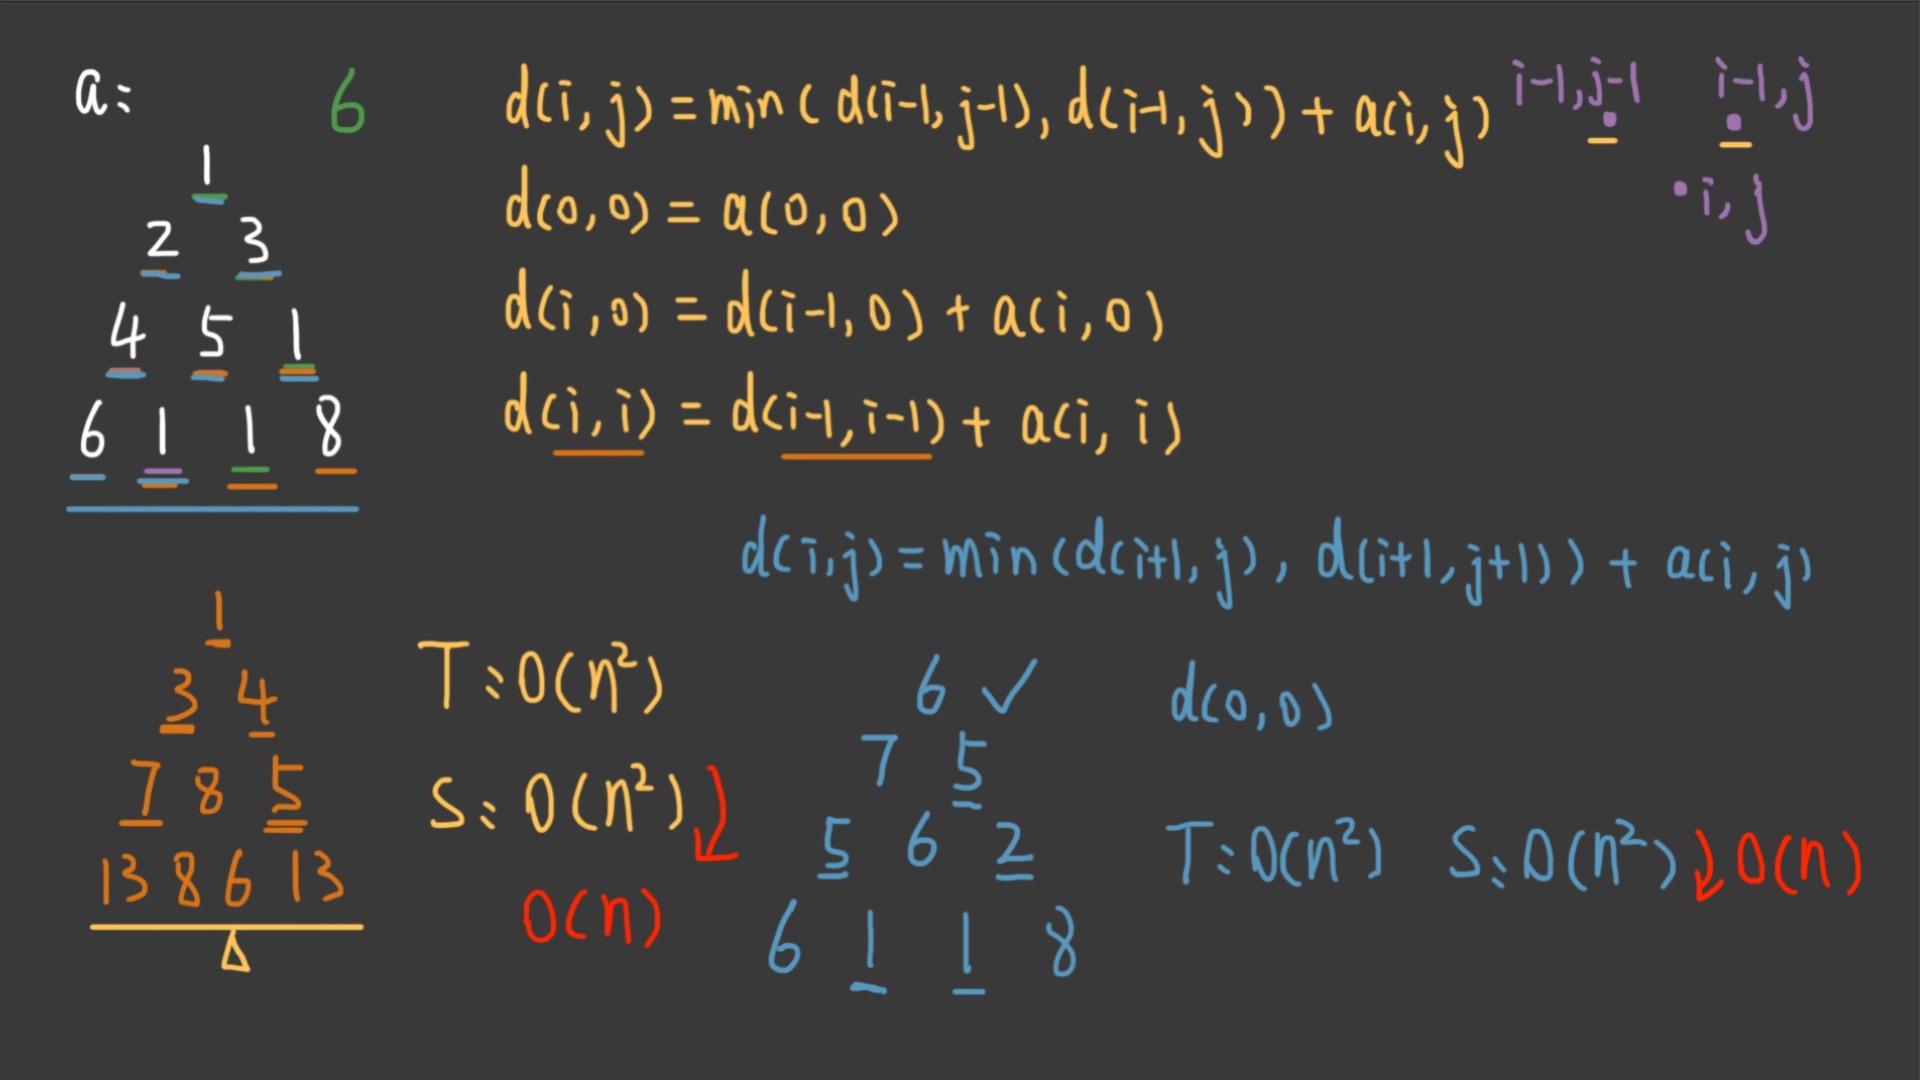 a:
6
1
2 3
4 5 1
6 1 1 8
d(i,j)=min(d(i-1,j-1),d(i-1,j))+a(i,j)
i-1,j-1 i-1,j
i,j
d(0,0)=a(0,0)
d(i,0)=d(i-1,0)+a(i,0)
d(i,i)=d(i-1,i-1)+a(i,i)
d(i,j)=min(d(i+1,j),d(i+1,j+1))+a(i,j)
1
3 4
7 8 5
13 8 6 13
T:O(n²)
S:O(n²)
O(n)
6 ✓
7 5
5 6 2
6 1 1 8
d(0,0)
T:O(n²) S:O(n²) O(n)